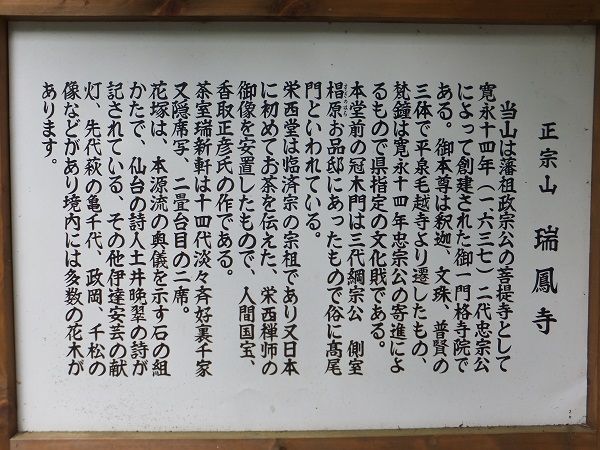 正宗山 瑞鳳寺
当山は藩祖政宗公の菩提寺として
寛永十四年（一六三七）二代忠宗公
によって創建された御一門格寺院で
ある。御本尊は釈迦、文珠、普賢の
三体で平泉毛越寺より遷したもの、
梵鐘は寛永十四年忠宗公の寄進によ
るもので県指定の文化財である。
本堂前の冠木門は三代綱宗公 側室
椙原お品邸にあったもので俗に髙尾
門といわれている。
栄西堂は臨済宗の宗祖であり又日本
に初めてお茶を伝えた、栄西禅師の
御像を安置したもので、人間国宝、
香取正彦氏の作である。
茶室瑞新軒は十四代淡々斉好裏千家
又隠席写、二畳台目の二席。
花塚は、本源流の奥儀を示す石の組
かたで、仙台の詩人土井晩翠の詩が
記されている、その他伊達安芸の献
灯、先代萩の亀千代、政岡、千松の
像などがあり境内には多数の花木が
あります。